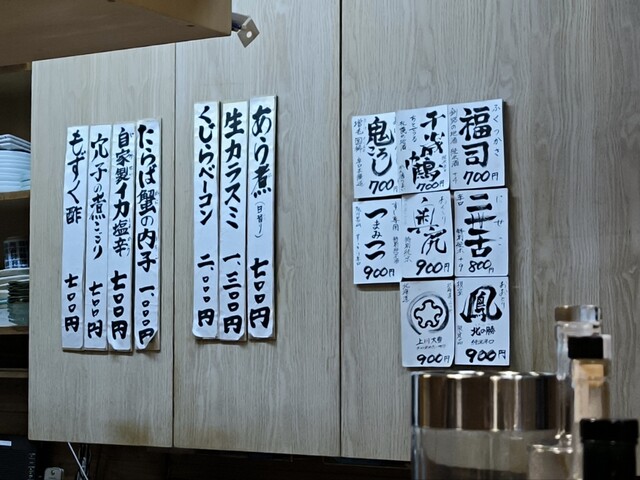 ふくつかさ
福司
700円
千歳鶴
700円
鬼ころし
700円
二世古
800円
900円
つまみ
900円
鳳
北の勝
900円
北海道
上川大雪
900円
あら煮(日替り) 七〇〇円
生カラスミ 一、三〇〇円
くじらベーコン 二、〇〇〇円
たらば蟹の内子 一〇〇〇円
自家製イカ塩辛 七〇〇円
穴子の煮こごり 七〇〇円
もずく酢 七〇〇円